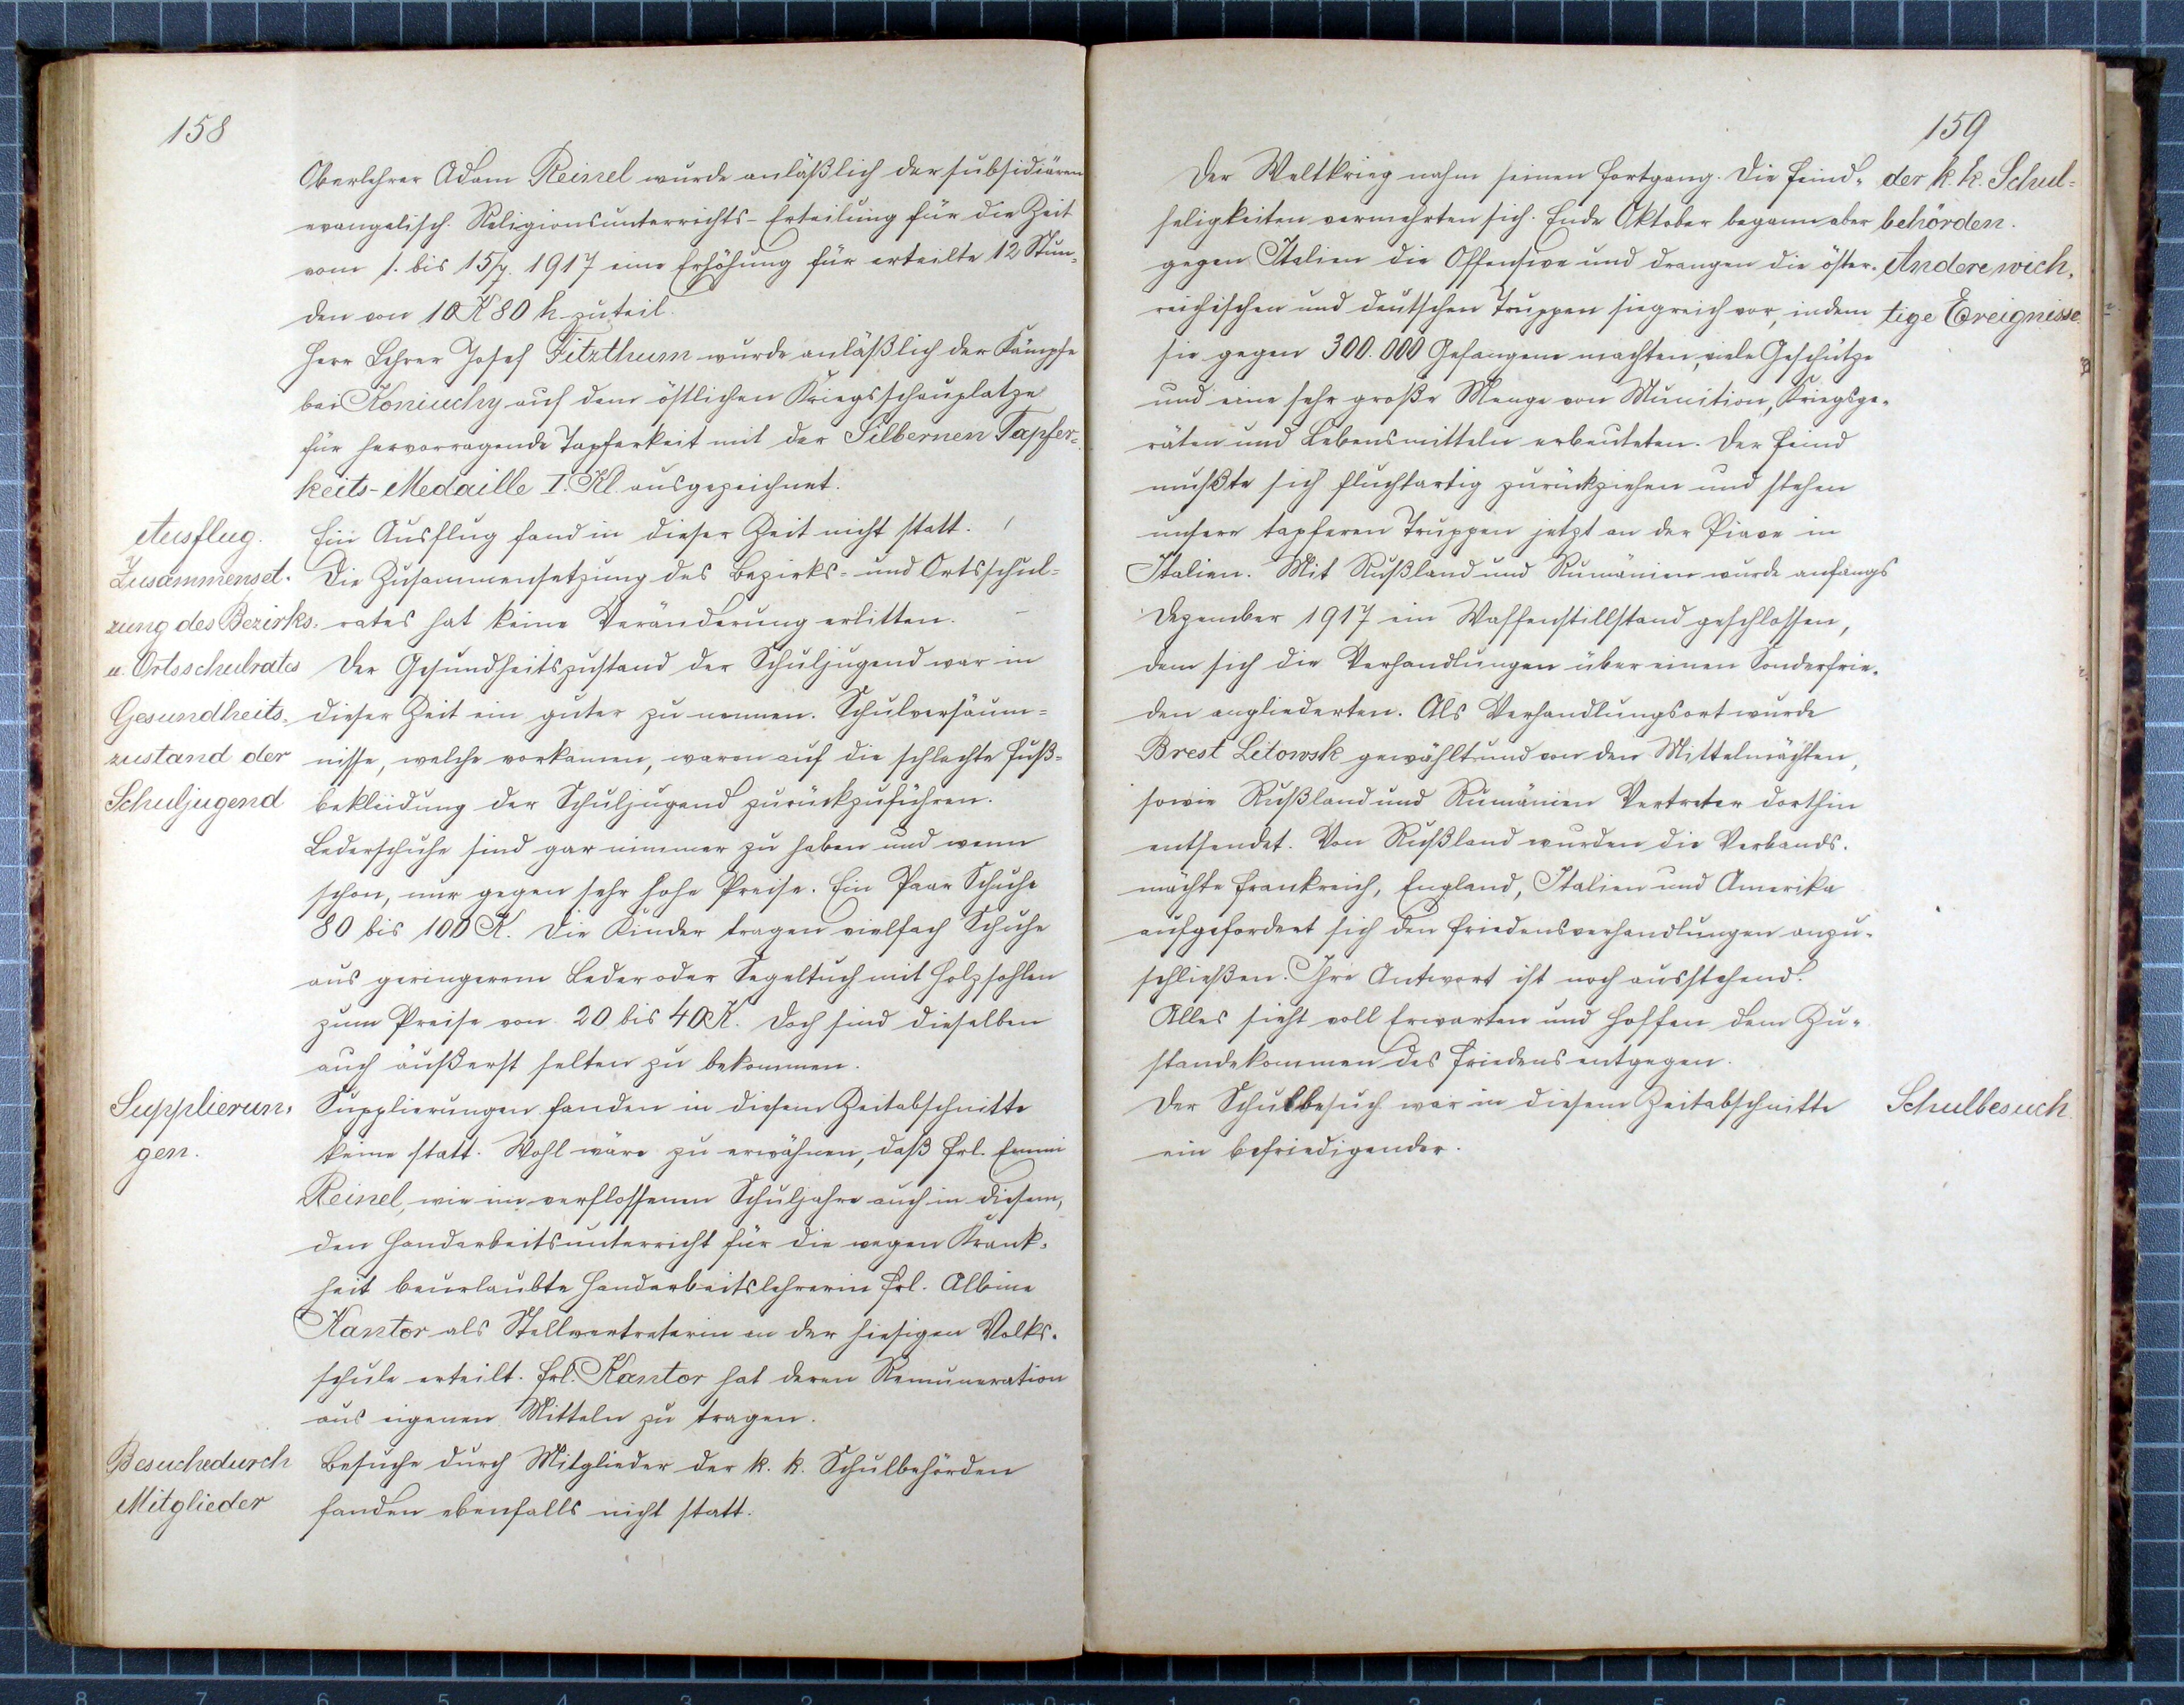 158
Oberlehrer Adam Reinel wurde anläßlich der subsidiären
evangelisch. Religionsunterrichts-Erteilung für die Zeit
vom 1. bis 15/7. 1917 eine Erhöhung für erteilte 12 Stun-
den von 10 K 80 h zuteil.
Herr Lehrer Josef Fitzthum wurde anläßlich der Kämpfe
bei Koniuchy auf dem östlichen Kriegsschauplatze
für hervorragende Tapferkeit mit der Silbernen Tapfer-
keits-Medaille I. Kl. ausgezeichnet.
Ausflug.
Ein Ausflug fand in dieser Zeit nicht statt.
Zusammenset-
zung des Bezirks-
u. Ortsschulrates
Die Zusammensetzung des Bezirks- und Ortsschul-
rates hat keine Veränderung erlitten.
Gesundheits-
zustand der
Schuljugend
Der Gesundheitszustand der Schuljugend war in
dieser Zeit ein guter zu nennen. Schulversäum-
nisse, welche vorkamen, waren auf die schlechte Fuß-
bekleidung der Schuljugend zurückzuführen.
Lederschuhe sind gar nimmer zu haben und wenn
schon, nur gegen sehr hohe Preise. Ein Paar Schuhe
80 bis 100 K. Die Kinder tragen vielfach Schuhe
aus geringerem Leder oder Segeltuch mit Holzsohlen
zum Preise von 20 bis 40 K. Doch sind dieselben
auch äußerst selten zu bekommen.
Supplierun-
gen.
Supplierungen fanden in diesem Zeitabschnitte
keine statt. Wohl wäre zu erwähnen, daß Frl. Emmi
Reinel, wie im verflossenen Schuljahre auch in diesem,
den Handarbeitsunterricht für die wegen Krank-
heit beurlaubte Handarbeitslehrerin Frl. Albine
Kantor als Stellvertreterin an der hiesigen Volks-
schule erteilt. Frl. Kantor hat deren Remuneration
aus eigenen Mitteln zu tragen.
Besuche durch
Mitglieder
Besuche durch Mitglieder der k. k. Schulbehörden
fanden ebenfalls nicht statt.
159
der k. k. Schul-
behörden.
Andere wich-
tige Ereignisse
Der Weltkrieg nahm seinen Fortgang. Die Feind-
seligkeiten vermehrten sich. Ende Oktober begann aber
gegen Italien die Offensive und drangen die öster-
reichischen und deutschen Truppen siegreich vor, indem
sie gegen 300.000 Gefangene machten, viele Geschütze
und eine sehr große Menge von Munition, Kriegsge-
räten und Lebensmitteln erbeuteten. Der Feind
mußte sich fluchtartig zurückziehen und stehen
unsere tapferen Truppen jetzt an der Piave in
Italien. Mit Rußland und Rumänien wurde anfangs
Dezember 1917 ein Waffenstillstand geschlossen,
dem sich die Verhandlungen über einen Sonderfrie-
den angliederten. Als Verhandlungsort wurde
Brest Litowsk gewählt und von den Mittelmächten,
sowie Rußland und Rumänien Vertreter dorthin
entsendet. Von Rußland wurden die Verbands-
mächte Frankreich, England, Italien und Amerika
aufgefordert sich den Friedensverhandlungen anzu-
schließen. Ihre Antwort ist noch ausstehend.
Alles sieht voll Erwarten und Hoffen dem Zu-
standekommen des Friedens entgegen.
Schulbesuch.
Der Schulbesuch war in diesem Zeitabschnitte
ein befriedigender.
8 7 6 5 4 3 2 1 inch 0 inch 1 2 3 4 5 6 7 8 9